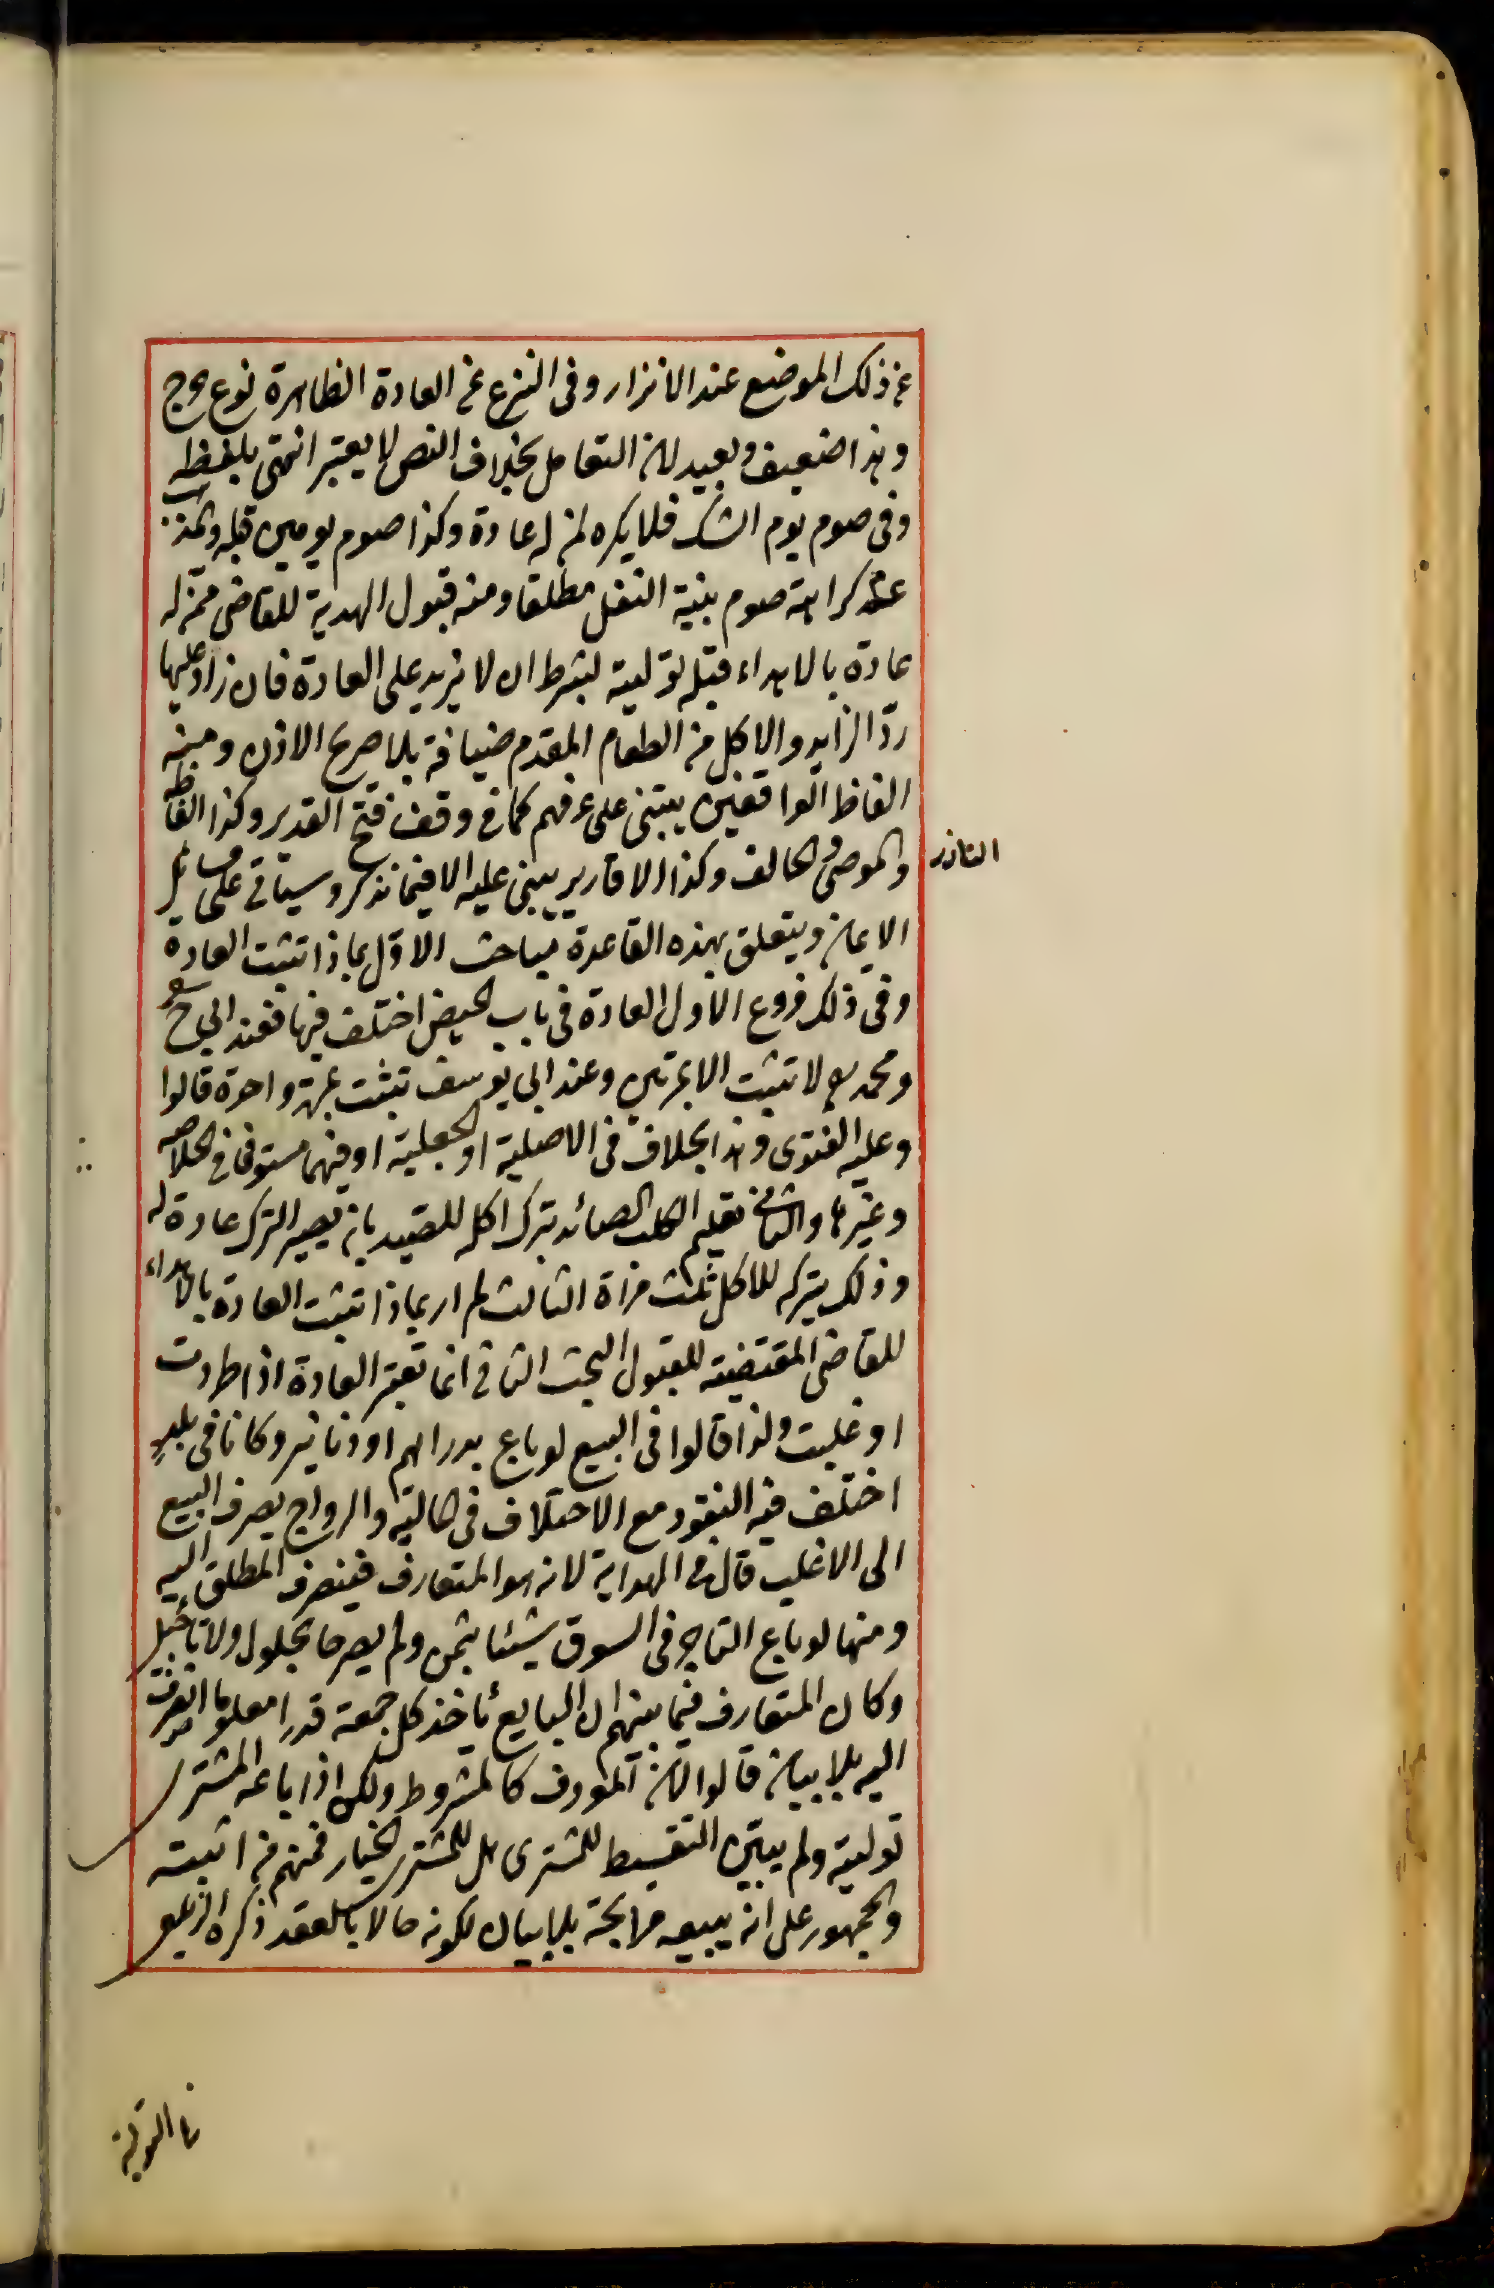 عن ذلك الموضع عند الانزار وفى النزع عن العادة الظاهرة نوع حرج
وهذا ضعيف وبعيد لان التعامل بخلاف النص لا يعتبر انتهى بلفظه
وفى صوم يوم الشك فلا يكره لمن له عادة وكذا صوم يومين قبله والمذهب
عدم كراهة صوم بنية النفل مطلقا ومنه قبول الهدية للقاضى ممن له
عادة بالاهداء قبله توليته بشرط ان لا يزيد على العادة فان زاد عليها
ردّ الزايد والاكل من الطعام المقدم ضيافة بلا صريح الاذن ومنه
الفاظ الواقفين يبتنى على عرفهم كما فى وقف فتح القدير وكذا الفاظ
والموصى والحالف وكذا الاقارير يبنى عليه الا فيما نذكر وسياتى على مسائل
النادر
الايمان ويتعلق بهذه القاعدة مباحث الاوّل بماذا تثبت العادة
وفى ذلك فروع الاول العادة فى باب الحيض اختلف فيها فعند ابى ح
ومحمد لا تثبت الا بمرتين وعند ابى يوسف تثبت بمرة واحدة قالوا
وعليه الفتوى وهذا الخلاف فى الاصلية او الجعلية او فيهما مستوفى فى الخلاصه
وغيرها والثانى تعليم الكلب الصائد بترك اكله للصيد بان يصير الترك عادة له
وذلك بتركه للاكل ثلث مراة الثالث لم ار بماذا تثبت العادة بالاهداء
للقاضى المقتضية للقبول البحث الثانى انما تعتبر العادة اذا اطردت
او غلبت ولذا قالوا فى البيع لو باع بدراهم او دنانير وكانا فى بلدٍ
اختلف فيه النقود مع الاختلاف فى المالية والرواج يصرف البيع
الى الاغلب قال فى الهداية لانه هو المتعارف فينصرف المطلق اليه
ومنها لو باع التاجر فى السوق شيئا بثمن ولم يصرحا بحلول ولا تأجيل
وكان المتعارف فيما بينهم ان البايع يأخذ كل جمعة قدرا معلوما انصرف
اليه بلا بيان قالوا لان المعروف كالمشروط ولكن اذا باعه المشترى
توليته ولم يبيّن التقسيط للمشترى هل للمشترى الخيار فمنهم من اثبته
والجمهور على انه يبيعه مرابحة بلا بيان لكونه حالا بالعقد ذكره الزيلعى
فى التولية